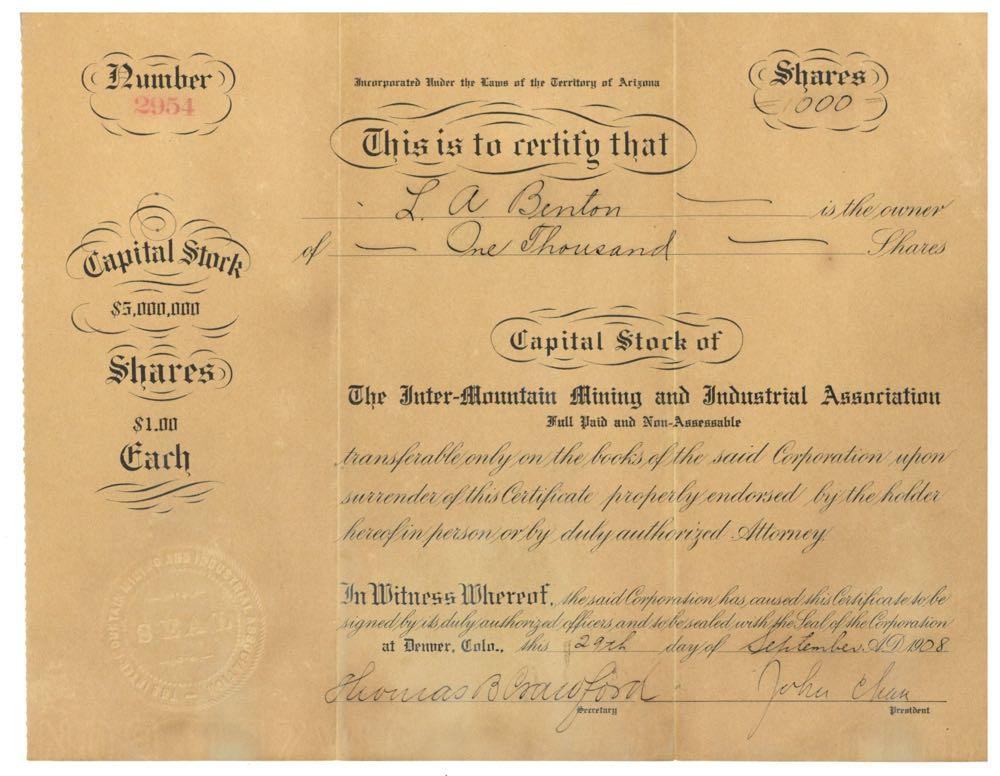 Number
2954
Incorporated Under the Laws of the Territory of Arizona
Shares
1000
This is to certify that
L. A Benton is the owner
of One Thousand Shares
Capital Stock
$5,000,000
Shares
$1.00
Each
Capital Stock of
The Inter-Mountain Mining and Industrial Association
Full Paid and Non-Assessable
transferable only on the books of the said Corporation upon
surrender of this Certificate properly endorsed by the holder
hereof in person or by duly authorized Attorney.
In Witness Whereof, the said Corporation has caused this Certificate to be
signed by its duly authorized officers and to be sealed with the Seal of the Corporation
at Denver, Colo., this 29th day of September A.D. 1908
Thomas B Crawford John
Secretary President
SEAL